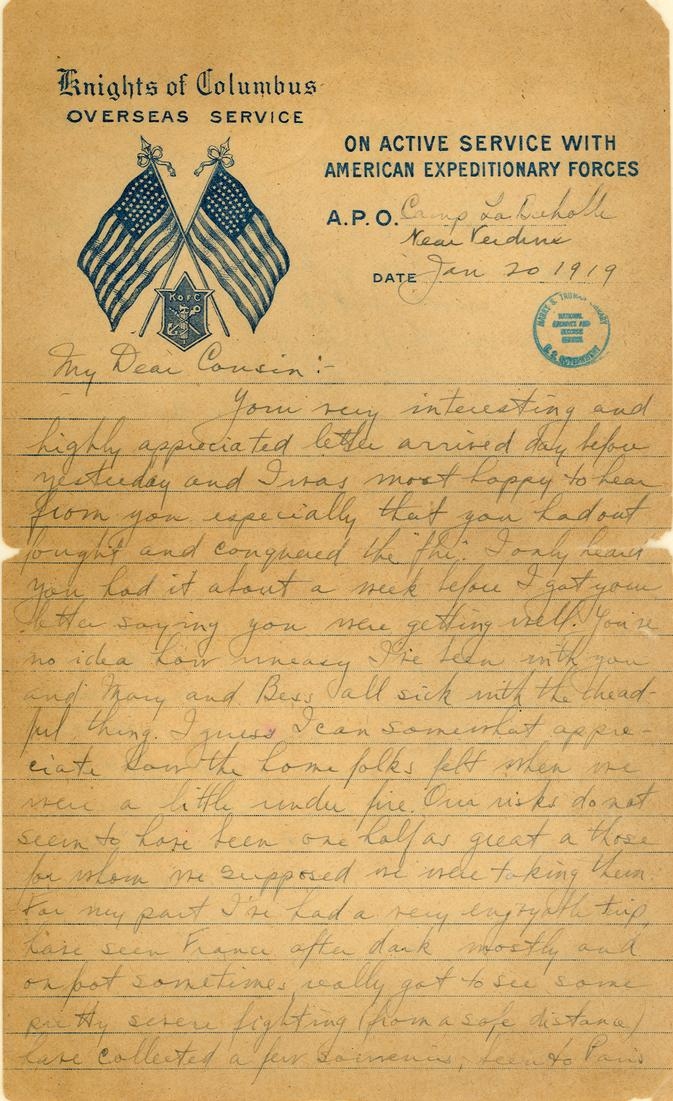 Knights of Columbus
OVERSEAS SERVICE
ON ACTIVE SERVICE WITH
AMERICAN EXPEDITIONARY FORCES
A.P.O. Camp La
Near Verdun
DATE Jan 20 1919
K of C
HARRY S. TRUMAN LIBRARY
NATIONAL
ARCHIVES AND
RECORDS
SERVICE
U.S. GOVERNMENT
My Dear Cousin:-
Your very interesting and
highly appreciated letter arrived day before
yesterday and I was most happy to hear
from you especially that you had out
fought and conquered the "flu". I only heard
you had it about a week before I got your
letter saying you were getting well. You've
no idea how uneasy I've been with you
and Mary and Bess all sick with the dread-
ful thing. I guess I can somewhat appre-
ciate how the home folks felt when we
were a little under fire. Our risks do not
seem to have been one half as great a those
for whom we supposed we were taking them.
For my part I've had a very enjoyable trip,
have seen France after dark mostly and
on foot sometimes, really got to see some
pretty severe fighting (from a safe distance)
have collected a few souvenirs, been to Paris